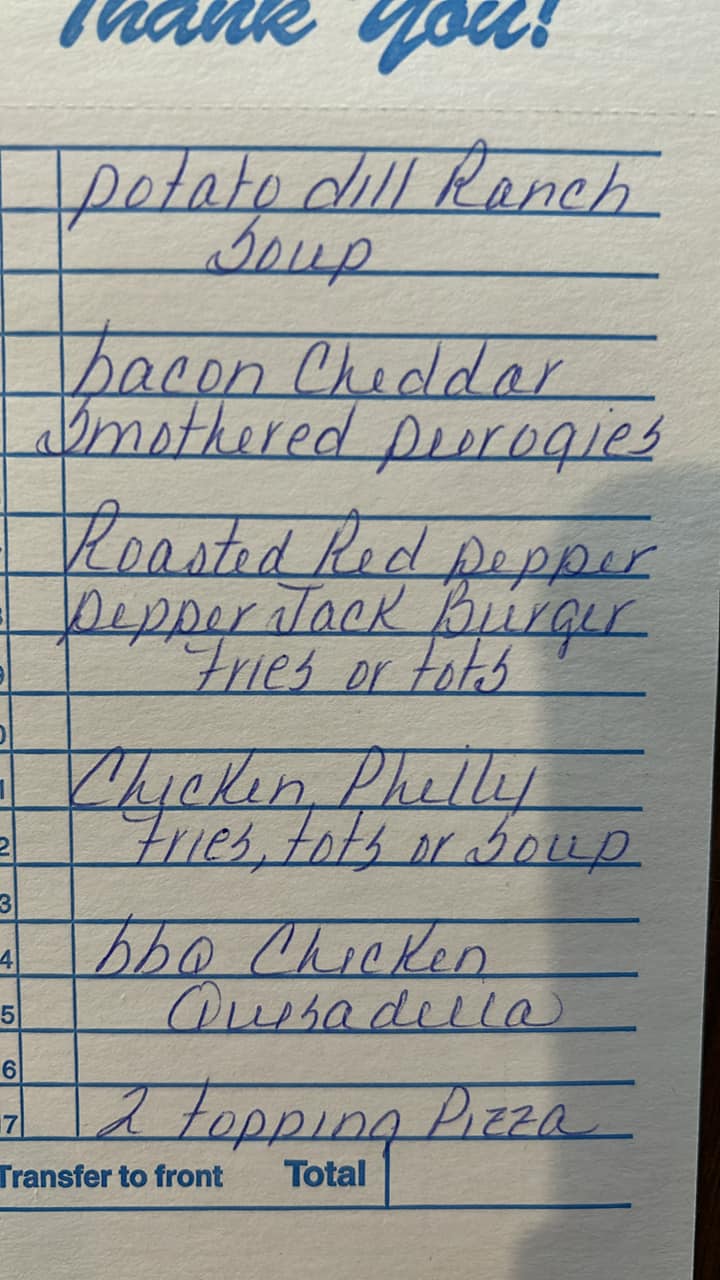 Thank You!
potato dill Ranch
Soup
bacon Cheddar
Smothered pierogies
Roasted Red pepper
pepper Jack Burger
fries or tots
Chicken Philly
fries, tots or Soup
bbq Chicken
Quesadilla
2 topping Pizza
0
1
2
3
4
5
6
7
Transfer to front Total